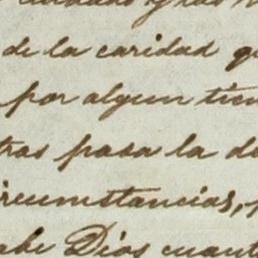 cuidado y las
de la caridad qu
por algun tien
tras pasa la de
ircumstancias,
abe Dios cuant